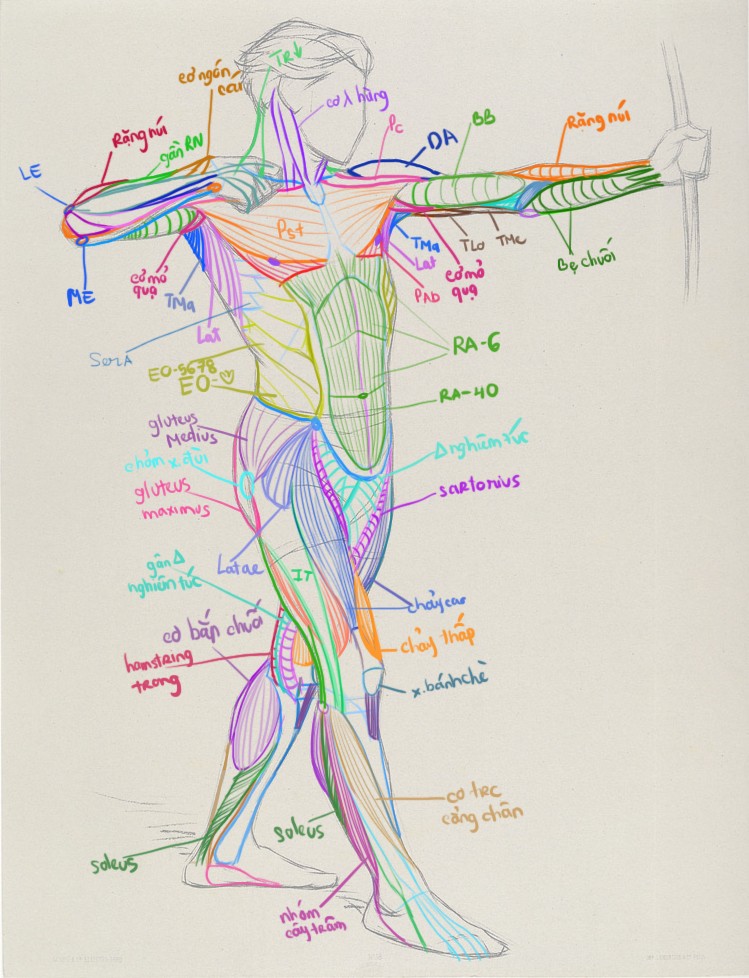 TR↓
cơ ngón
cái
cơ λ hũng
Răng núi
gân RN
Pc
DA
BB
Răng núi
LE
Pst
TMa
Lat
TLo
TMe
Bẹ chuối
ME
cơ mỏ
quạ
TMa
PAb
cơ mỏ
quạ
Lat
SerA
RA-6
EO-5678
EO-♡
RA-40
gluteus
Medius
Δ nghiêm túc
chỏm x.đùi
gluteus
maximus
sartorius
Latae
IT
gân Δ
nghiêm túc
chảy cao
cơ bắp chuối
chảy thấp
hamstring
trong
x.bánh chè
cơ trc
cẳng chân
soleus
soleus
nhóm
cây trâm